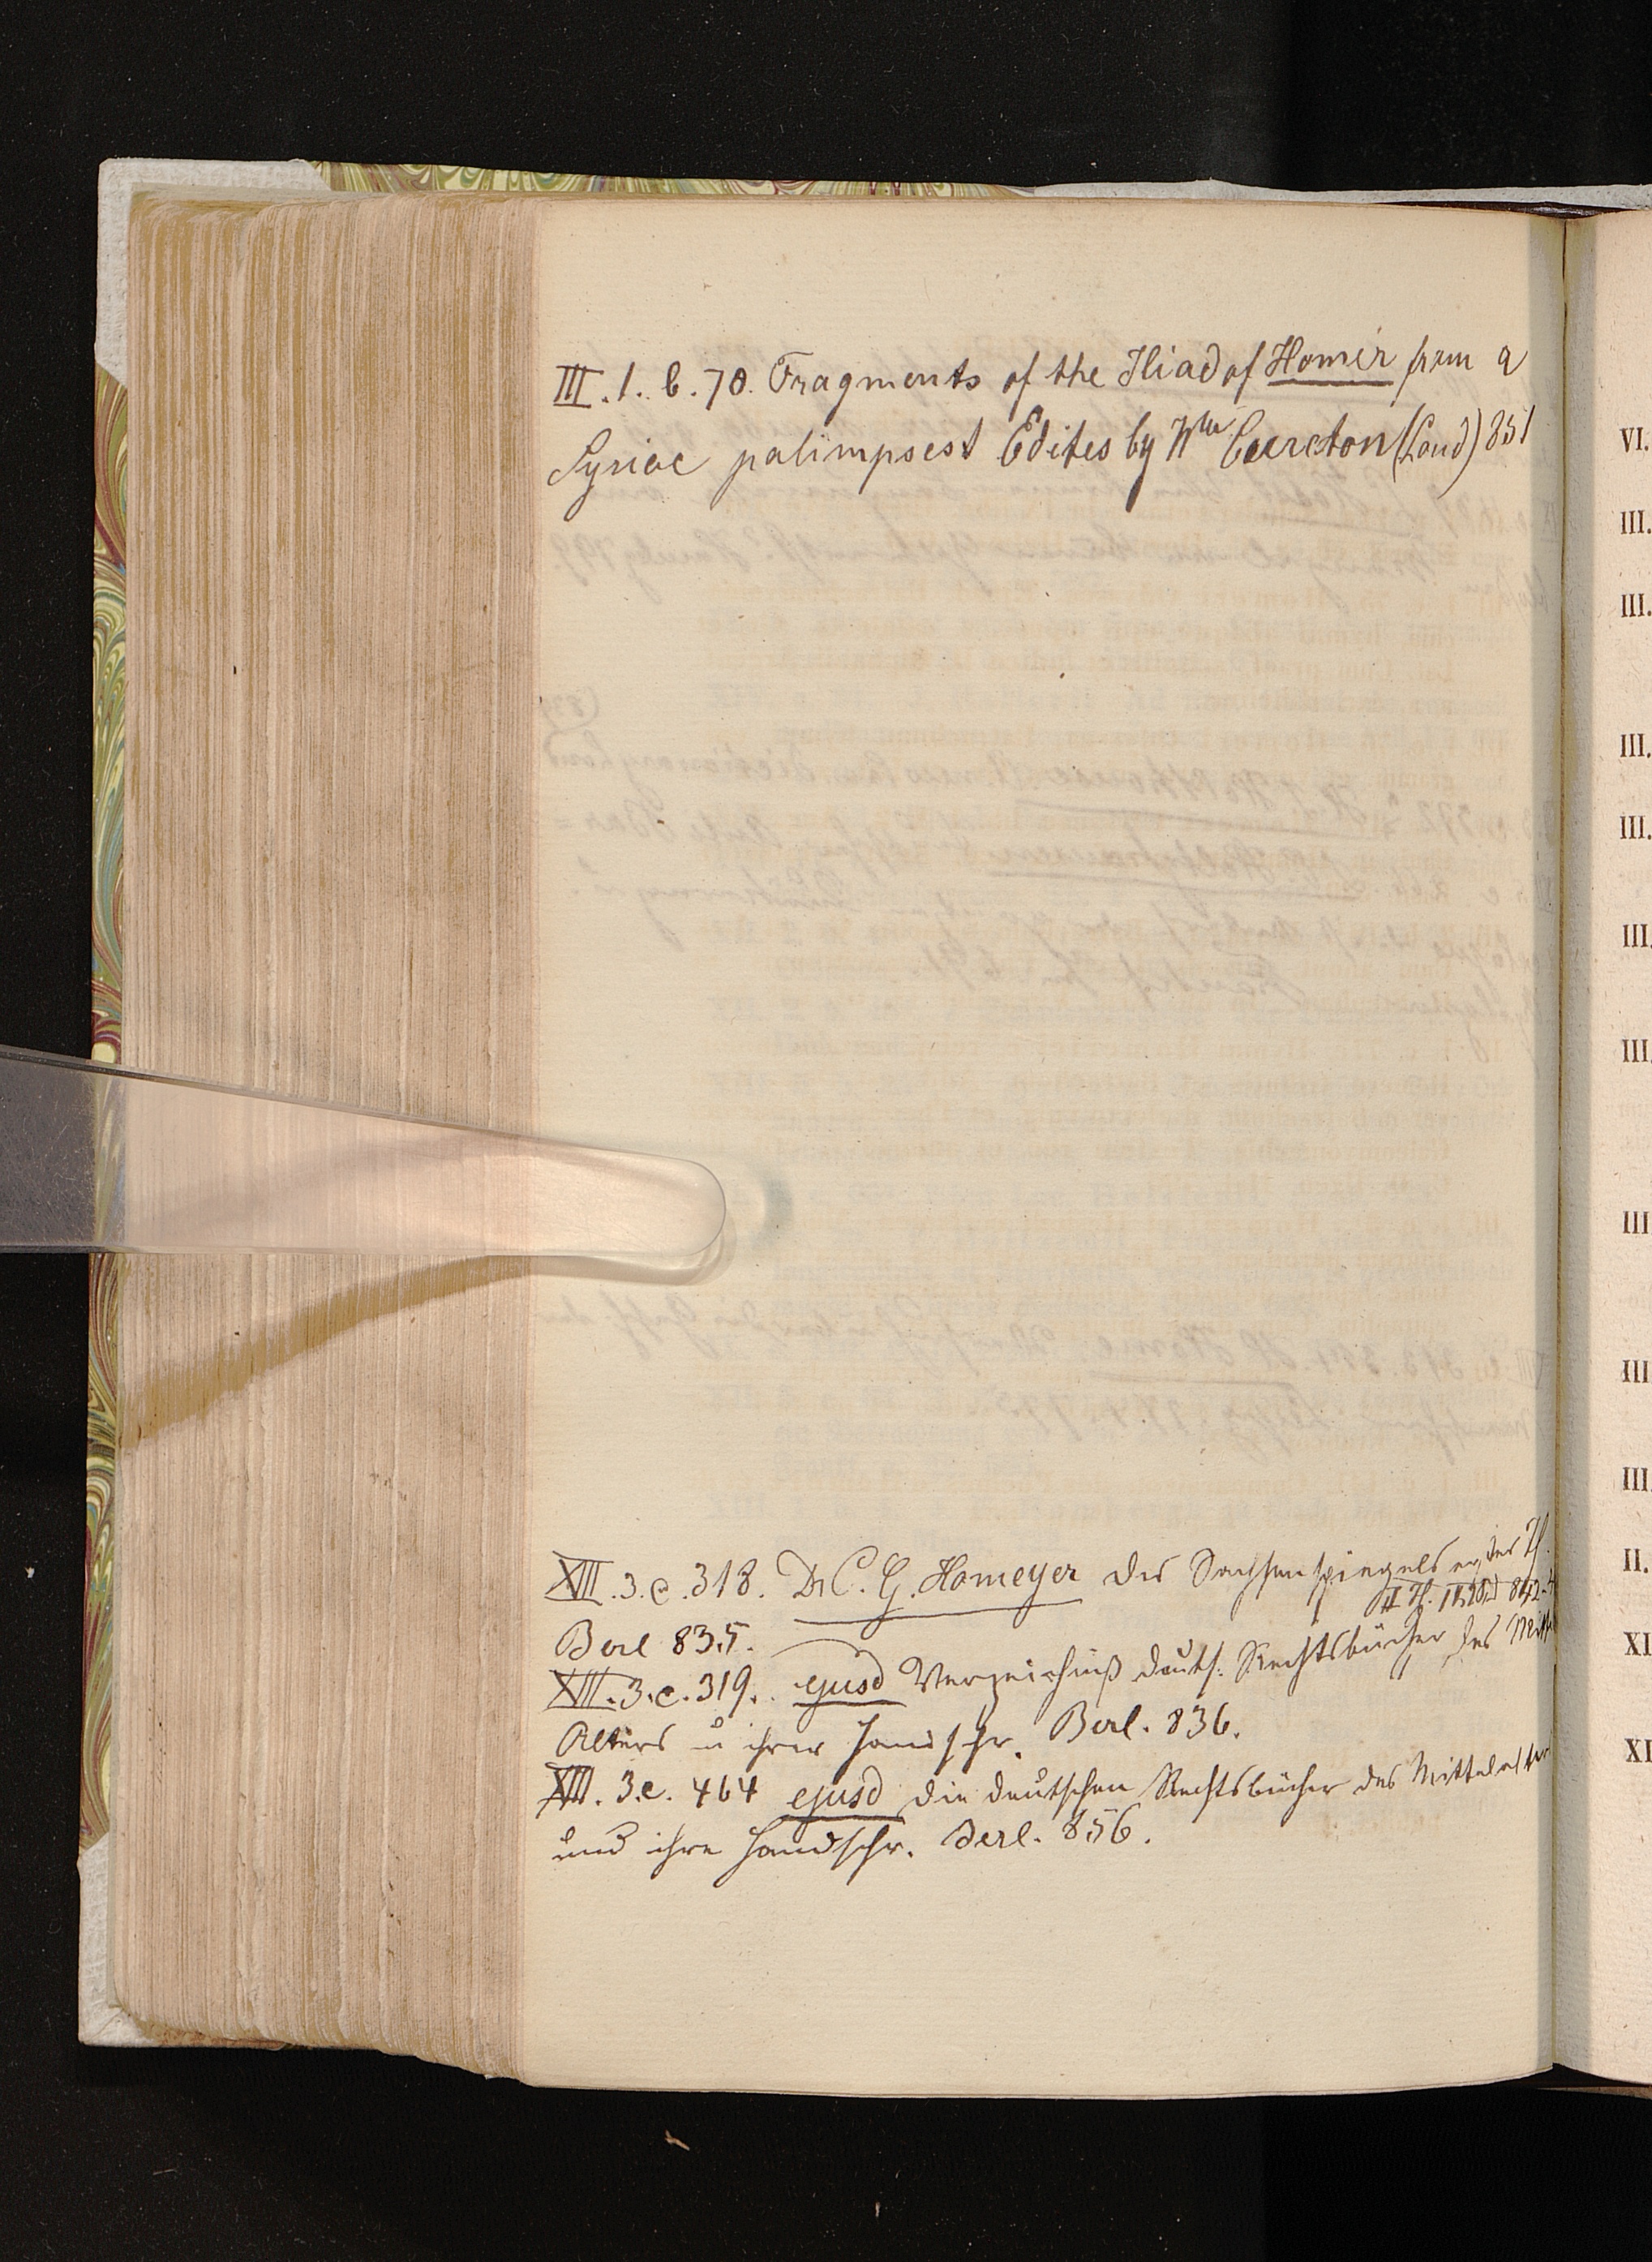 III.1.b.70. Fragments of the Iliad of Homer from a
Syriac palimpsest Edites by Wm Cureton (Lond) 851
XIII.3.c.318. Dr C. G. Homeyer des Sachsenspiegels erster Th.
II Th. 1 u 2 Bd 842-4
Berl 835.
XIII.3.c.319. ejusd Verzeichniß deuts. Rechtsbücher des Mittel
Alters u ihrer Handschr. Berl. 836.
XIII.3.c.464 ejusd die deutschen Rechtsbücher des Mittelalter
und ihre Handschr. Berl. 856.
VI.
III.
III.
III.
III.
III.
III.
III
III
III.
II.
XI
XI